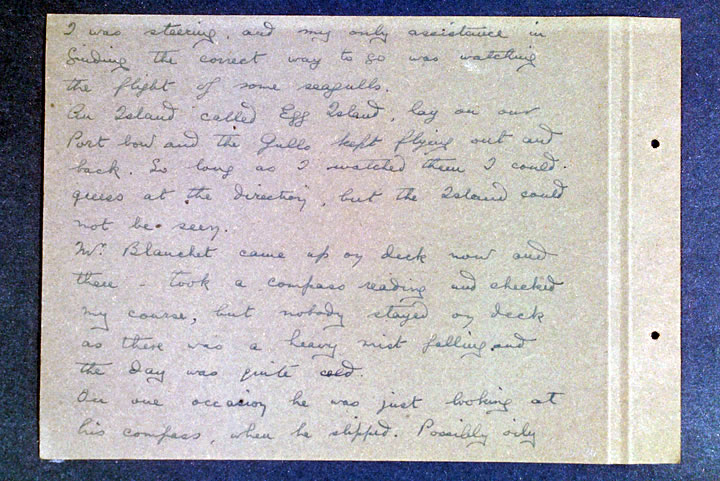 I was steering, and my only assistance in
finding the correct way to go was watching
the flight of some seagulls.
An Island called Egg Island, lay on our
Port bow and the Gulls kept flying out and
back. So long as I watched them I could
guess at the direction, but the Island could
not be seen.
Mr. Blanchet came up on deck now and
then - took a compass reading and checked
my course, but nobody stayed on deck
as there was a heavy mist falling and
the day was quite cold.
On one occasion he was just looking at
his compass, when he slipped. Possibly oily